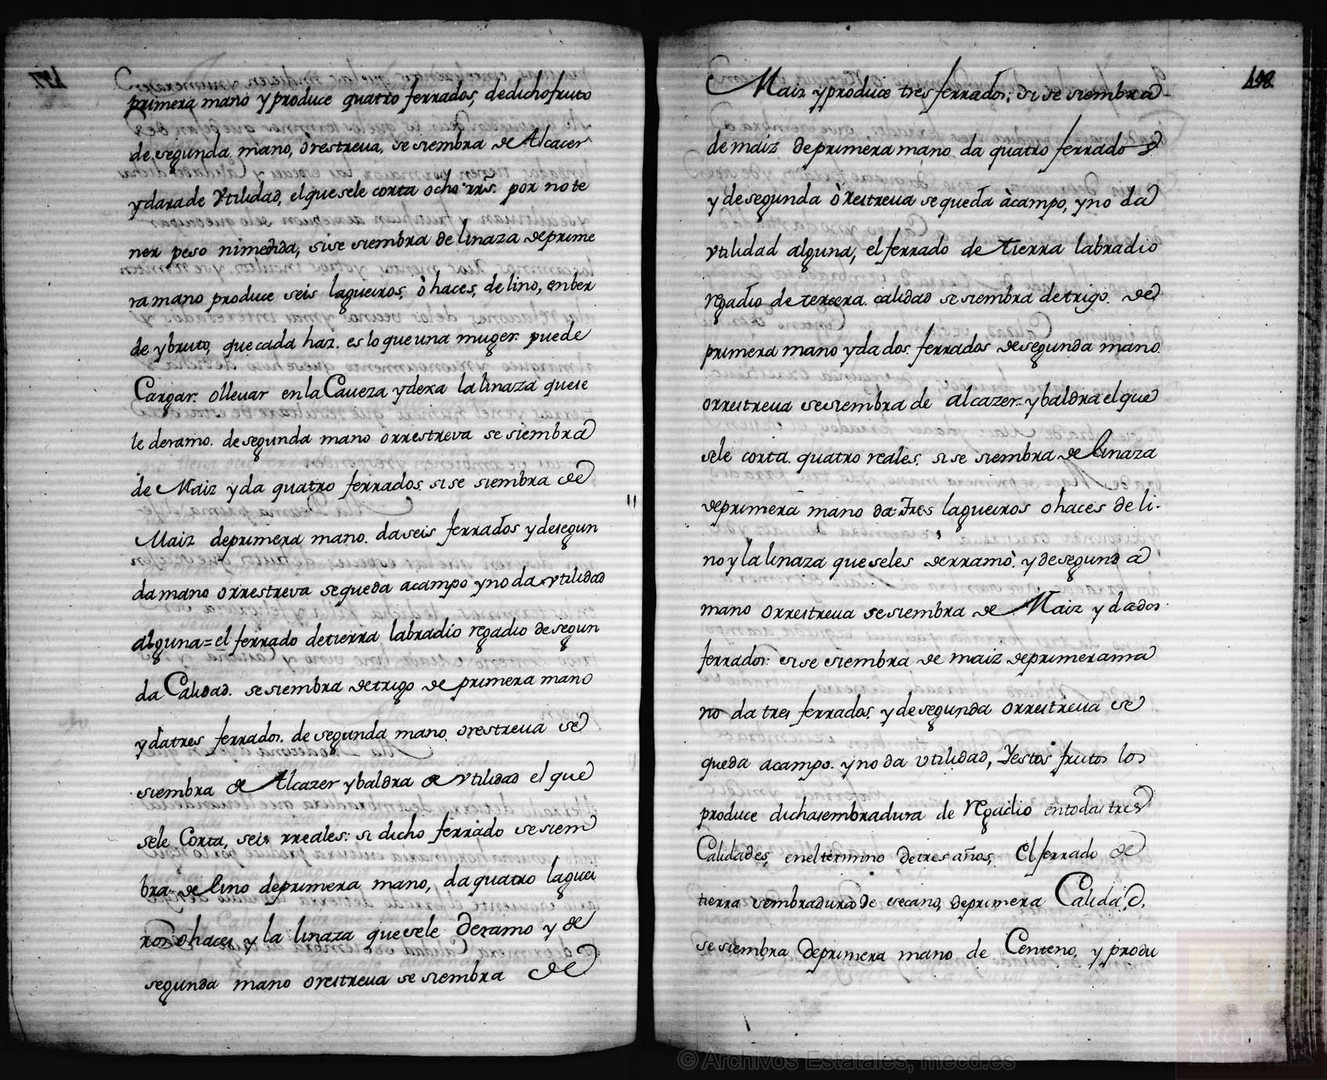 primera mano y produce quatro ferrados, de dicho fruto
de segunda mano, o restreva, se siembra de Alcacer
y dara de Vtilidad, el que se le corta ocho rrs. por no te
ner peso ni medida, si se siembra de linaza de prime
ra mano produce seis lagueiros, ò haces, de lino, en ber
de y bruto, que cada haz. es lo que una muger puede
Cargar. o lleuar en la Caveza y dexa la linaza que se
le deramo. de segunda mano o rrestreva se siembra
de Maiz y da quatro ferrados si se siembra de
Maiz de primera mano. da seis ferrados y de segun
da mano o rrestreva se queda a campo y no da vtilidad
alguna = el ferrado de tierra labradio regadio de segun
da Calidad. se siembra de trigo de primera mano
y da tres ferrados. de segunda mano o restreva se
siembra de Alcazer y baldra de vtilidad el que
se le Corta, seis rreales: si dicho ferrado se siem
bra de lino de primera mano, da quatro laguei
ros o haces y la linaza que se le Deramo y de
segunda mano o restreva se siembra de
158.
Maiz y produce tres ferrados; si se siembra
de maiz de primera mano da quatro ferrados
y de segunda ò restreva se queda à campo, y no da
vtilidad alguna, el ferrado de tierra labradio
regadio de tercera calidad se siembra de trigo. de
primera mano y da dos ferrados de segunda mano
o rrestreva se siembra de alcazer y baldra el que
se le corta quatro reales, si se siembra de Linaza
de primera mano da Tres lagueiros o haces de li-
no y la linaza que se les derramò, y de segunda
mano o rrestreva se siembra de Maiz y da dos
ferrados: si se siembra de maiz de primera ma
no da tres ferrados y de segunda o rrestreva se
queda a campo. y no da vtilidad, Y estos frutos los
produce dicha sembradura de regadio en todas tres
Calidades, en el termino de tres años, El ferrado de
tierra sembradura de secano, de primera Calidad,
se siembra de primera mano de Centeno, y produ
© Archivos Estatales, mecd.es